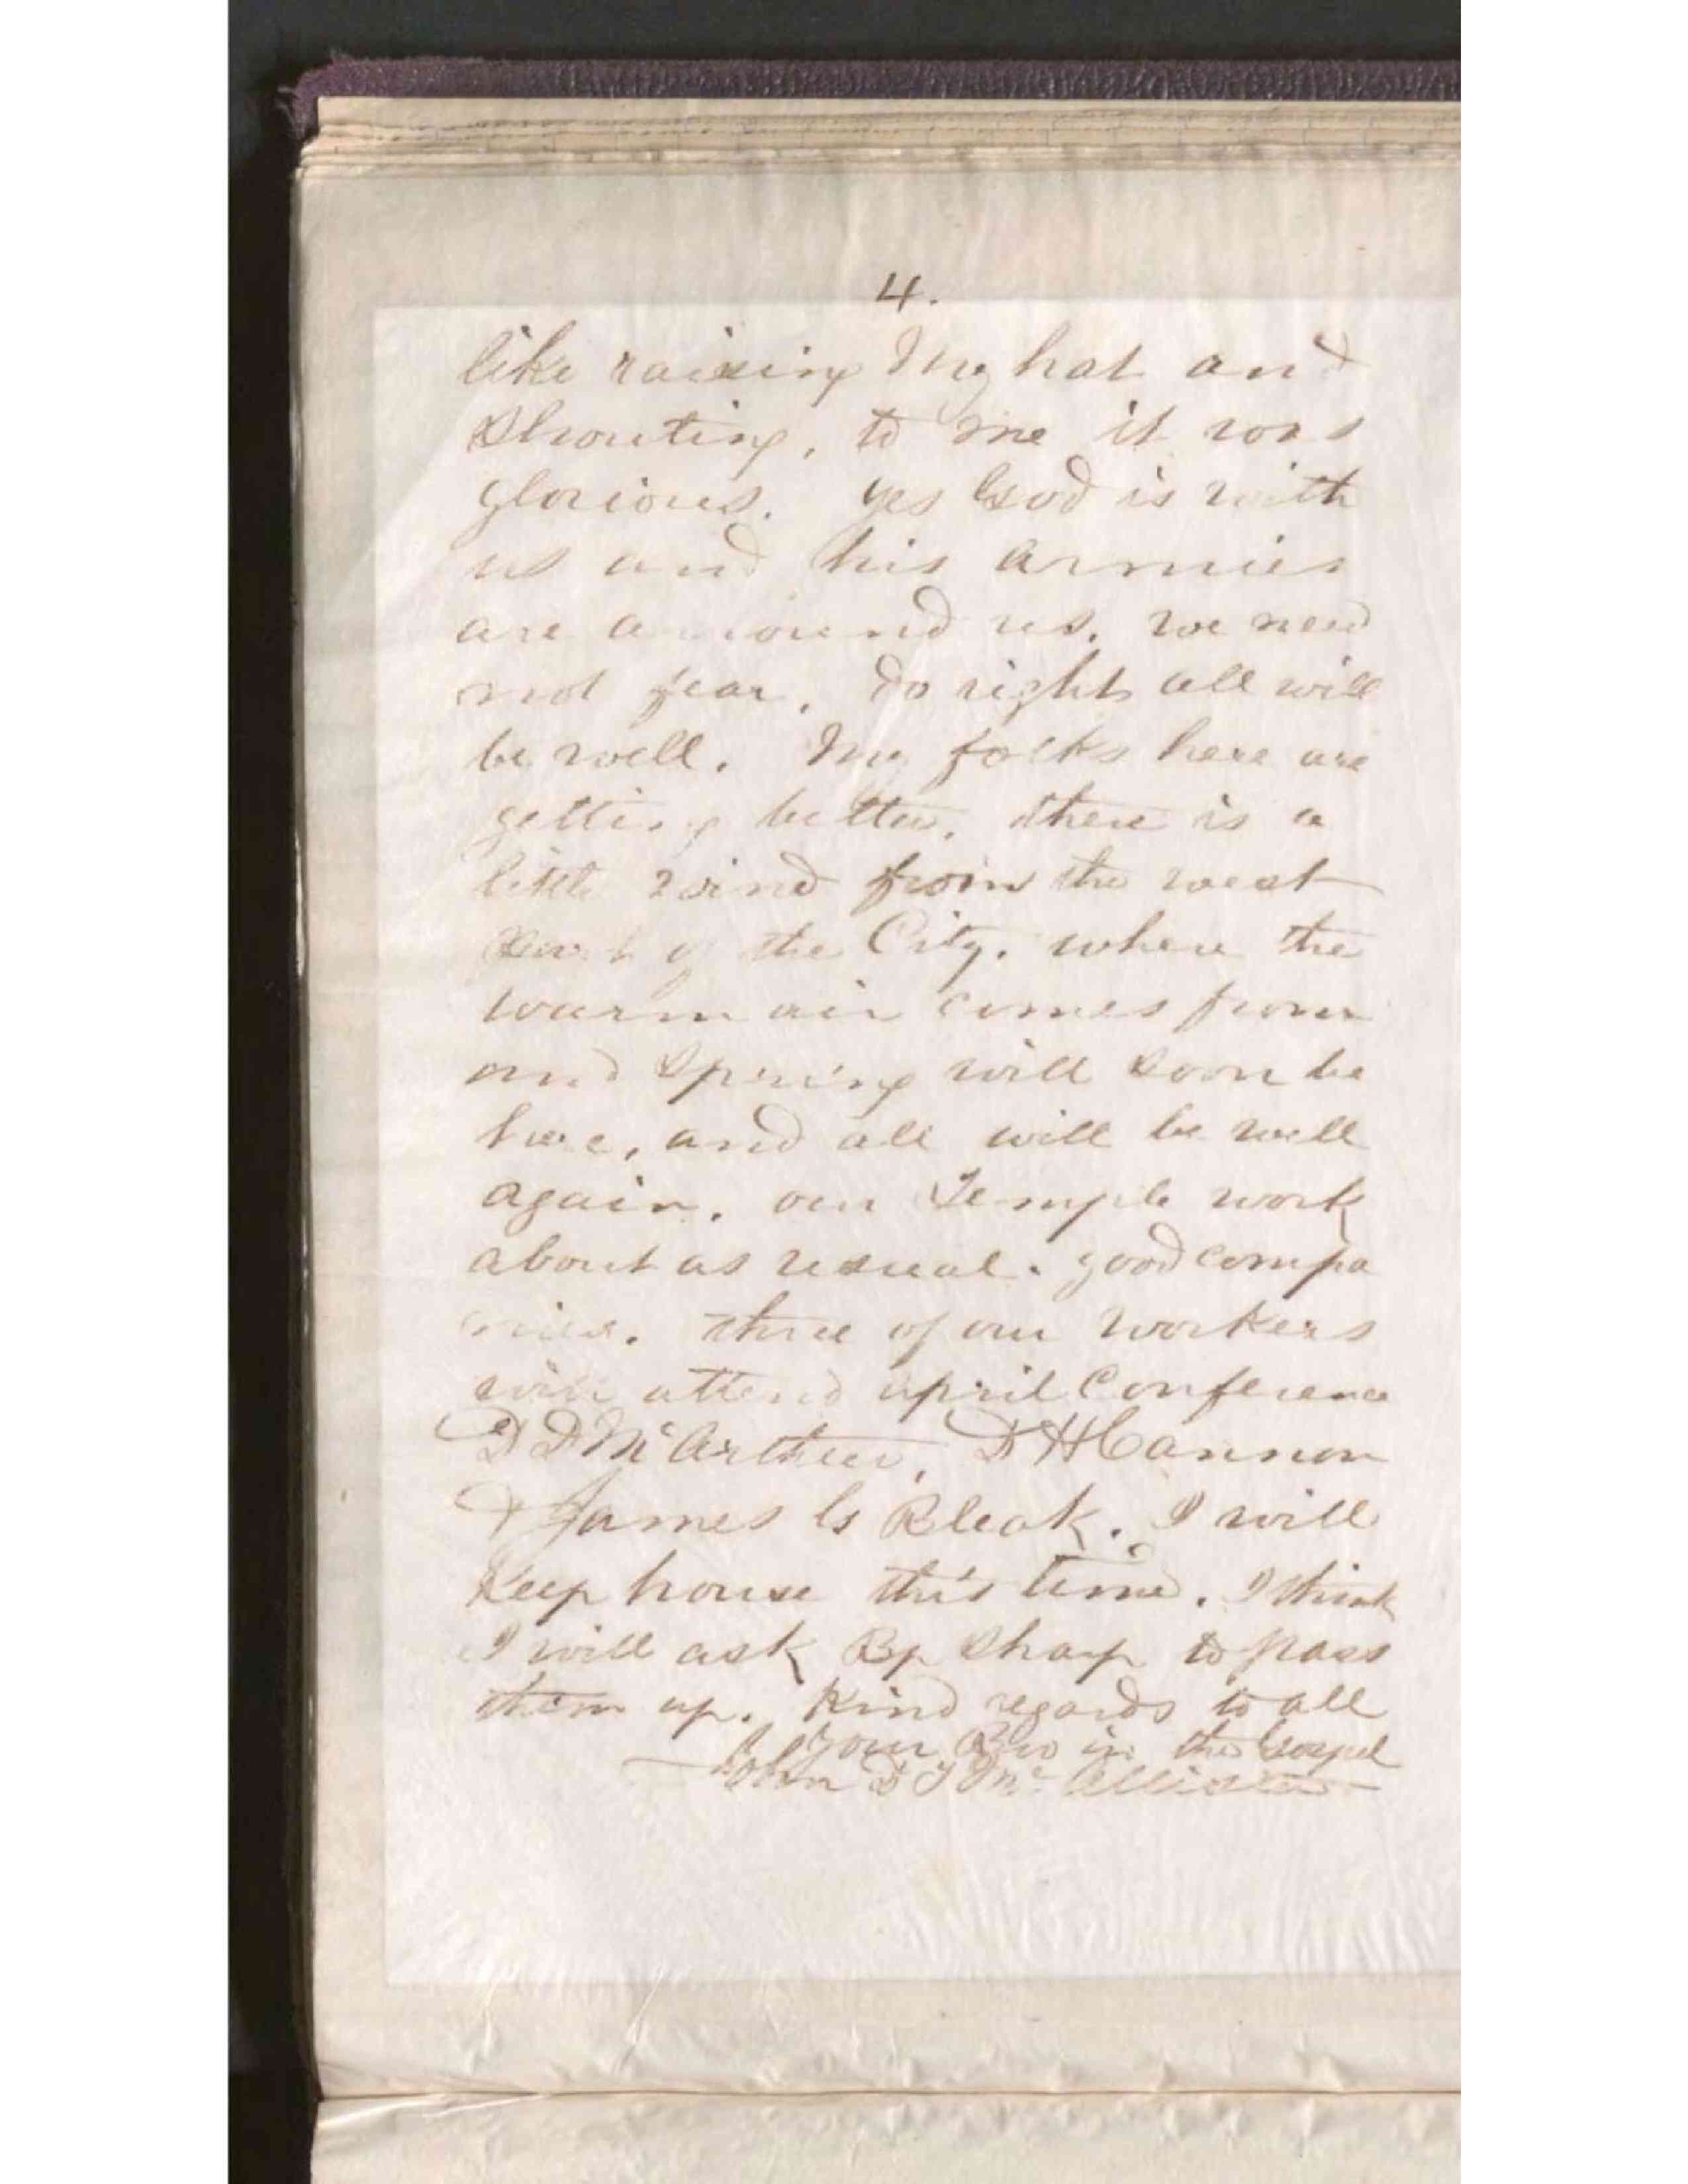 4.
like raising My hat and
Shouting, to me it was
glorious. yes God is with
us and his armies
are arround us. we need
not fear. do right all will
be well. My folks here are
getting better. there is a
little wind from the west
part of the City. where the
warm air comes from
and Spring will soon be
here, and all will be well
again. our Temple work
about as usual. good compa
nies. three of our workers
will attend april Conference
D D McArthur, D H Cannon
& James G Bleak. I will
Keep house this time. I think
I will ask Bp Sharp to pass
them up. Kind regards to all
Your Bro in the Gospel
John D T McAllister